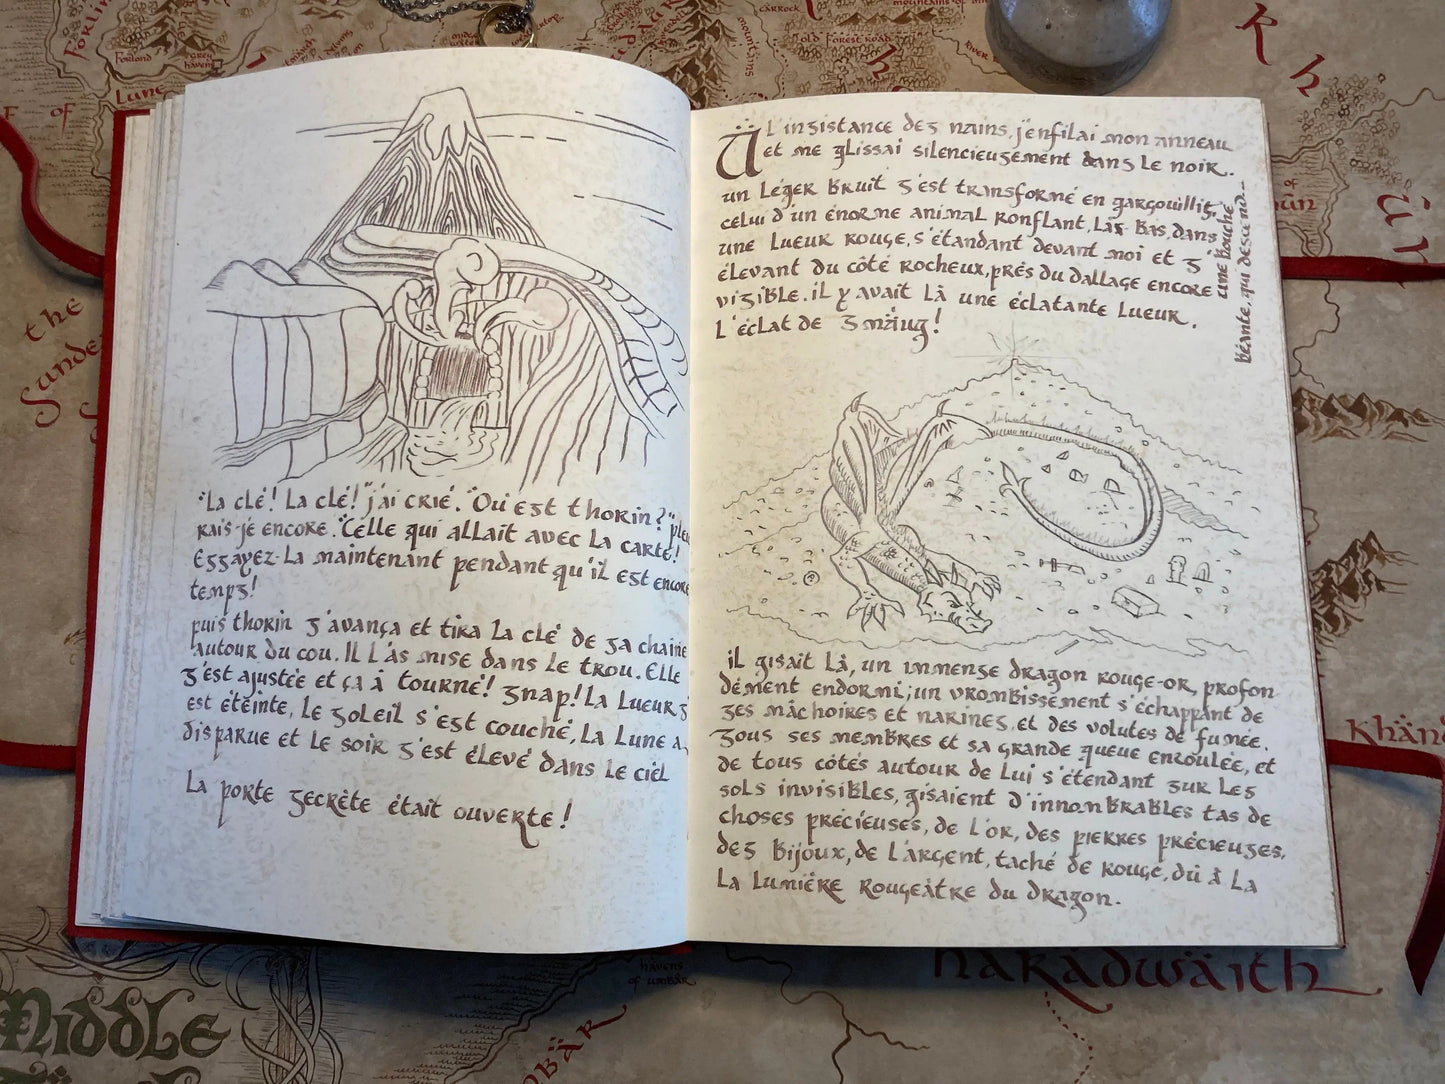 "La clé! La clé!" j'ai crié. "Où est thorin?" pleu
rais-je encore. "Celle qui allait avec la carte!
Essayez-La maintenant pendant qu'il est encore
temps!
puis thorin s'avança et tira la clé de sa chaine
autour du cou. Il l'às mise dans le trou. Elle
s'est ajustée et ça à tourné! snap! La Lueur s'
est éteinte, le soleil s'est couché, La Lune a
disparue et le soir s'est élevé dans le ciel
La porte secrète était ouverte!
À l'insistance des nains, j'enfilai mon anneau
et me glissai silencieusement dans le noir.
un léger bruit s'est transformé en gargouillis,
celui d'un énorme animal ronflant, Làs-Bas, dans
une lueur rouge, s'étandant devant moi et s'
élevant du côté rocheux, près du dallage encore
visible. il y avait là une éclatante lueur.
L'éclat de Smaüg!
une bouche
béante, qui descend...
il gisait là, un immense dragon rouge-or, profon
dément endormi; un vrombissement s'échappant de
ses mâchoires et narines, et des volutes de fumée.
Sous ses membres et sa grande queue enroulée, et
de tous côtés autour de lui s'étendant sur les
sols invisibles, gisaient d'innombrables tas de
choses précieuses, de l'or, des pierres précieuses,
des bijoux, de l'argent, taché de rouge, dû à la
La lumière rougeâtre du dragon.
Forlond
Grey
havens
Lune
of
carrock
old forest road
mountains of
R h
the
Sunde
Khänd
haradwäith
havens
of umbär
Middle